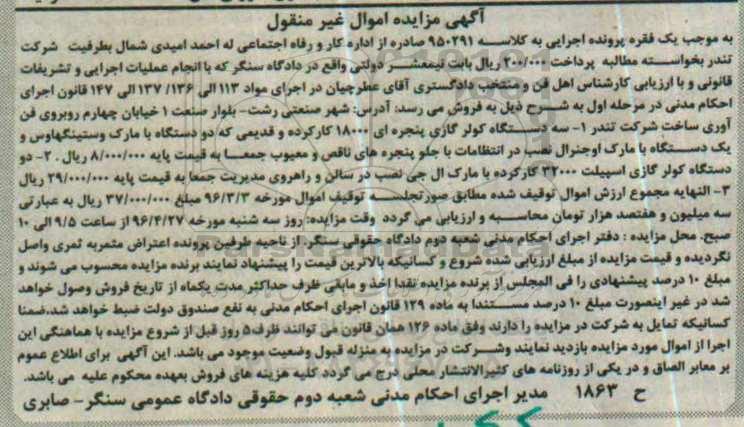 آگهی مزایده اموال غیر منقول
به موجب یک فقره پرونده اجرایی به کلاسه ۹۵۰۲۹۱ صادره از اداره کار و رفاه اجتماعی له احمد امیدی شمال بطرفیت شرکت
تندر بخواسته مطالبه پرداخت ۲۰۰/۰۰۰ ریال بابت نیمعشر دولتی واقع در دادگاه سنگر که با انجام عملیات اجرایی و تشریفات
قانونی و با ارزیابی کارشناس اهل فن و منتخب دادگستری آقای عطرچیان در اجرای مواد ۱۱۳ الی ۱۳۶/ ۱۳۷ الی ۱۴۷ قانون اجرای
احکام مدنی در مرحله اول به شرح ذیل به فروش می رسد: آدرس: شهر صنعتی رشت- بلوار صنعت ۱ خیابان چهارم روبروی فن
آوری ساخت شرکت تندر ۱- سه دستگاه کولر گازی پنجره ای ۱۸۰۰۰ کارکرده و قدیمی که دو دستگاه با مارک وستینگهاوس و
یک دستگاه با مارک اوجنرال نصب در انتظامات با جلو پنجره های ناقص و معیوب جمعا به قیمت پایه ۸/۰۰۰/۰۰۰ ریال . ۲- دو
دستگاه کولر گازی اسپیلت ۳۲۰۰۰ کارکرده با مارک ال جی نصب در سالن و راهروی مدیریت جمعا به قیمت پایه ۲۹/۰۰۰/۰۰۰ ریال
۳- النهایه مجموع ارزش اموال توقیف شده مطابق صورتجلسه توقیف اموال مورخه ۹۶/۳/۳ مبلغ ۳۷/۰۰۰/۰۰۰ ریال به عبارتی
سه میلیون و هفتصد هزار تومان محاسبه و ارزیابی می گردد وقت مزایده: روز سه شنبه مورخه ۹۶/۴/۲۷ از ساعت ۹/۵ الی ۱۰
صبح. محل مزایده : دفتر اجرای احکام مدنی شعبه دوم دادگاه حقوقی سنگر. از ناحیه طرفین پرونده اعتراض مثمربه ثمری واصل
نگردیده و قیمت مزایده از مبلغ ارزیابی شده شروع و کسانیکه بالاترین قیمت را پیشنهاد نمایند برنده مزایده محسوب می شوند و
مبلغ ۱۰ درصد پیشنهادی را فی المجلس از برنده مزایده نقدا اخذ و مابقی ظرف حداکثر مدت یکماه از تاریخ فروش وصول خواهد
شد در غیر اینصورت مبلغ ۱۰ درصد مستندا به ماده ۱۲۹ قانون اجرای احکام مدنی به نفع صندوق دولت ضبط خواهد شد.ضمنا
کسانیکه تمایل به شرکت در مزایده را دارند وفق ماده ۱۲۶ همان قانون می توانند ظرف ۵ روز قبل از شروع مزایده با هماهنگی این
اجرا از اموال مورد مزایده بازدید نمایند وشرکت در مزایده به منزله قبول وضعیت موجود می باشد. این آگهی برای اطلاع عموم
بر معابر الصاق و در یکی از روزنامه های کثیرالانتشار محلی درج می گردد کلیه هزینه های فروش بعهده محکوم علیه می باشد.
ح ۱۸۶۳ مدیر اجرای احکام مدنی شعبه دوم حقوقی دادگاه عمومی سنگر- صابری